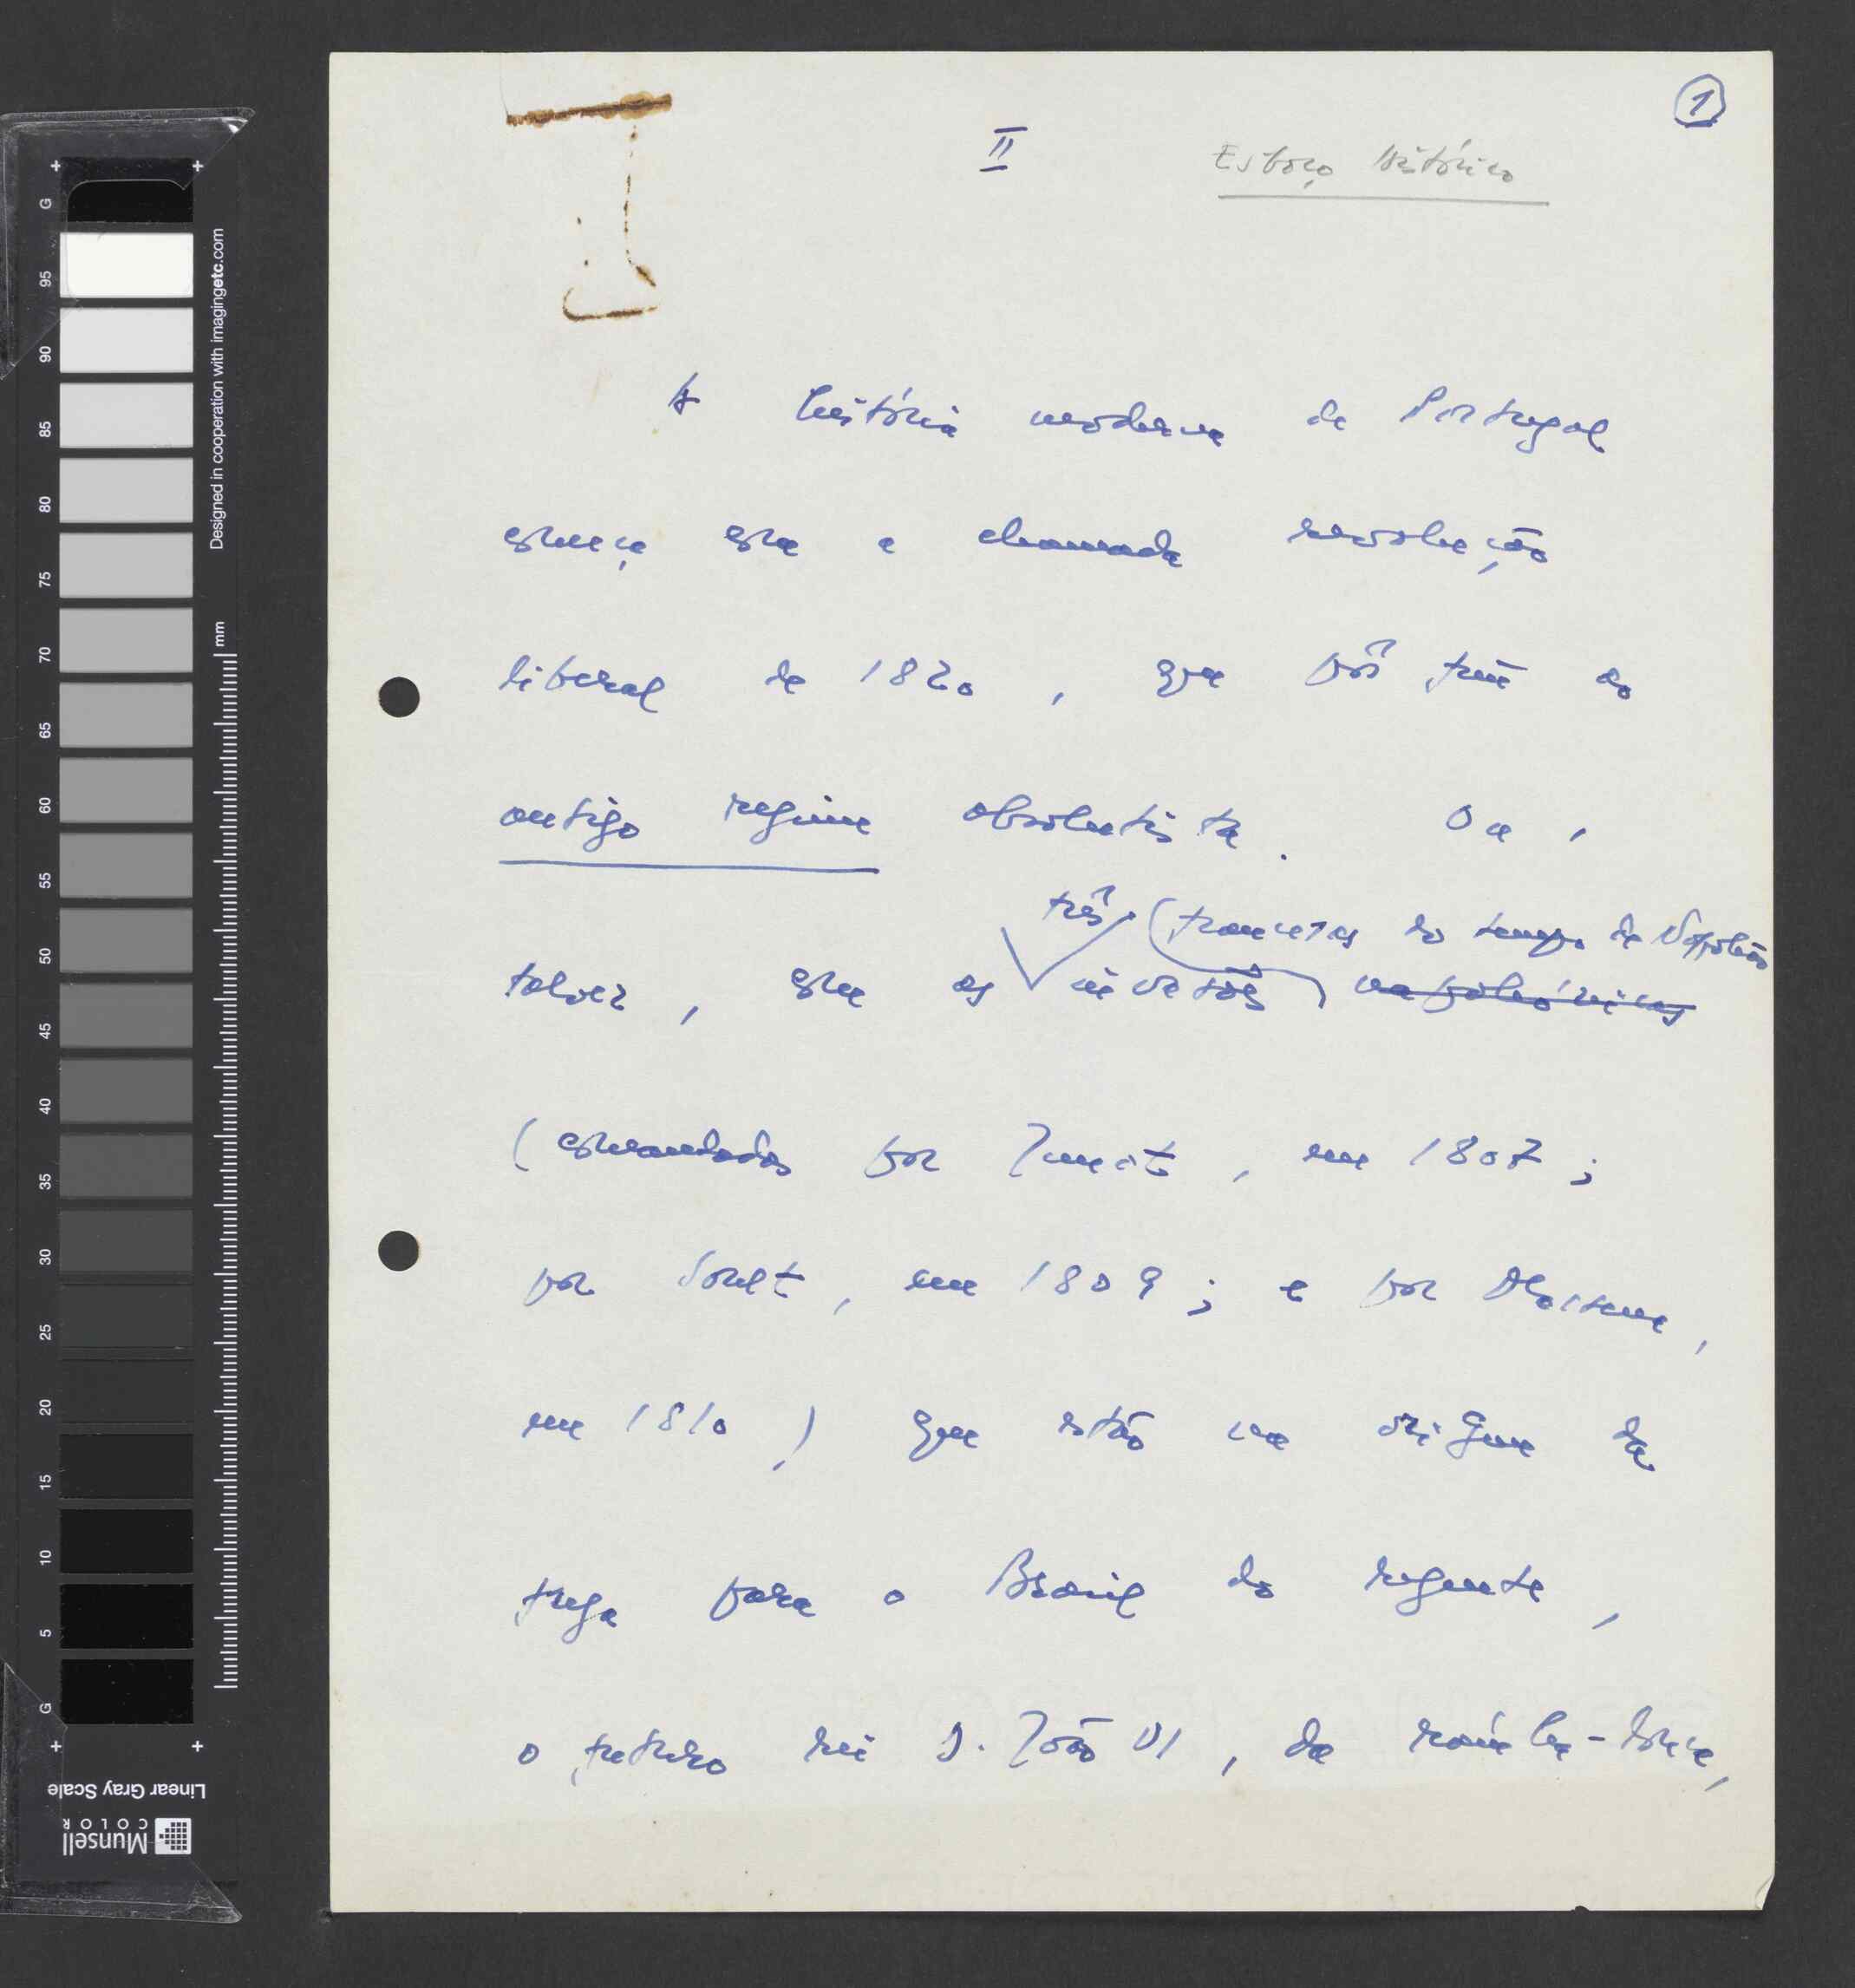 1
II
Esboço histórico
A história moderna de Portugal
começa com a chamada revolução
liberal de 1820, que pôs fim ao
antigo regime absolutista. Ou,
três (francesas do tempo de Napoleão
talvez, com as invasões) napoleónicas
(comandadas por Junot, em 1807;
por Soult, em 1809; e por Massena,
em 1810) que estão na origem da
fuga para o Brasil do regente,
o futuro rei D. João VI, da rainha-louca,
G
95
90
85
80
75
70
65
60
55
50
45
40
35
30
25
20
15
10
5
G
Designed in cooperation with imagingetc.com
mm
Linear Gray Scale
Munsell
COLOR